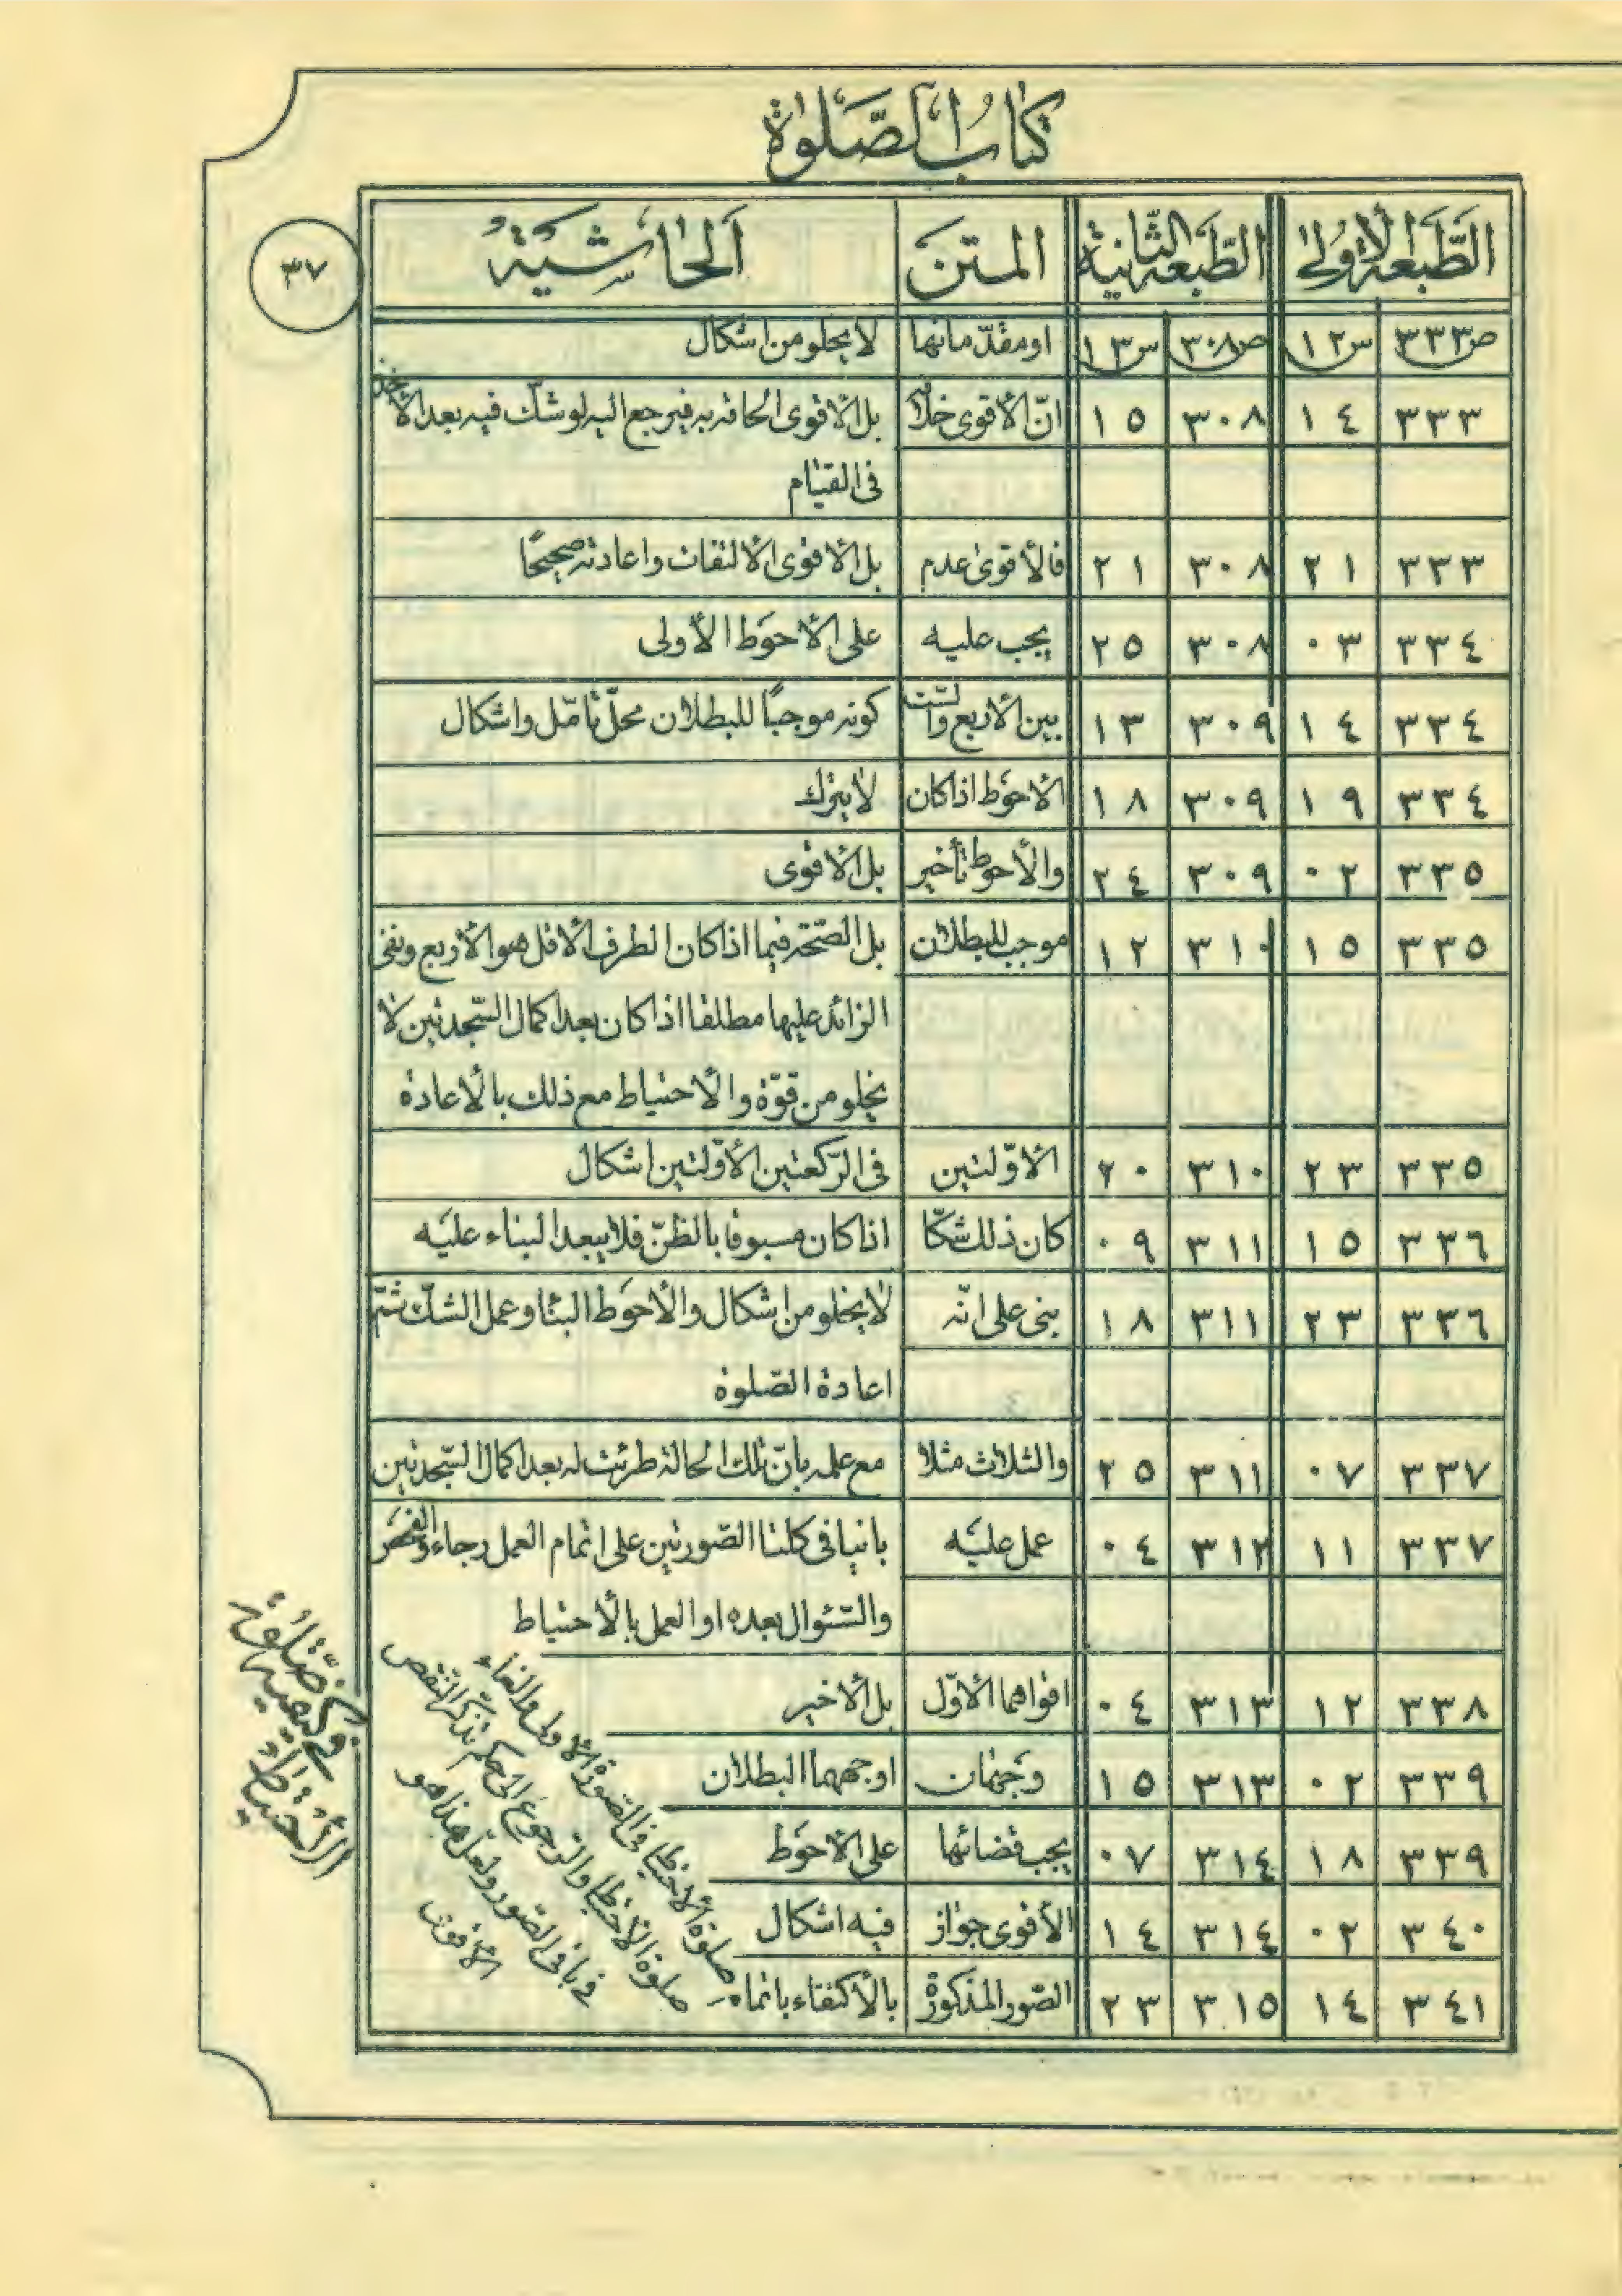 كتاب الصّلوة
الطّبعة الاولى الطّبعة الثّانية المتن الحاشية
٣٧
ص٣٣٣ س١٢ ص٣٠٨ س١٣ او مقدّماتها لا يخلو من اشكال
٣٣٣ ١٤ ٣٠٨ ١٥ انّ الأقوى خلافه بل الأقوى الحاقه به فيرجع اليه لو شكّ فيه بعد الأخذ
فى القيام
٣٣٣ ٢١ ٣٠٨ ٢١ فالأقوى عدم بل الأقوى الالتفات واعادته صحيحًا
٣٣٤ ٠٣ ٣٠٨ ٢٥ يجب عليه على الأحوَط الأولى
٣٣٤ ١٤ ٣٠٩ ١٣ بين الأربع والستّ كونه موجبًا للبطلان محلّ تأمّل واشكال
٣٣٤ ١٩ ٣٠٩ ١٨ الأحوَط اذا كان لا يترك
٣٣٥ ٠٢ ٣٠٩ ٢٤ والأحوط تأخير بل الأقوى
٣٣٥ ١٥ ٣١٠ ١٢ موجب للبطلان بل الصّحّة فيما اذا كان الطرف الأقل هو الأربع ونفى
الزائد عليها مطلقا اذا كان بعد اكمال السّجدتين لا
يخلو من قوّة والأحتياط مع ذلك بالأعادة
٣٣٥ ٢٣ ٣١٠ ٢٠ الأوّلتين فى الرّكعتين الأوّلتين اشكال
٣٣٦ ١٥ ٣١١ ٠٩ كان ذلك شكّا اذا كان مسبوقا بالظنّ فلا يبعد البناء عليَه
٣٣٦ ٢٣ ٣١١ ١٨ بنى على انّه لا يخلو من اشكال والأحوَط البنا وعمل الشكّ ثمّ
اعادة الصّلوة
٣٣٧ ٠٧ ٣١١ ٢٥ والثلاث مثلا مع علمه بانّ تلك الحالة طرئت له بعد اكمال السّجدتين
٣٣٧ ١١ ٣١٢ ٠٤ عمل عليَه بانيا فى كلتا الصّورتين على اتمام العمل رجاء والفحَص
والسّئوال بعده او العمل بالأحتياط
٣٣٨ ١٢ ٣١٣ ٠٤ اقواهما الأوّل بل الأخير
٣٣٩ ٠٢ ٣١٣ ١٥ وجهان اوجههما البطلان
٣٣٩ ١٨ ٣١٤ ٠٧ يجب قضائها على الأحوَط
٣٤٠ ٠٢ ٣١٤ ١٤ الأقوى جواز فيه اشكال
٣٤١ ١٤ ٣١٥ ٢٣ الصّور المذكورة بالأكتفاء باتمام
صلوة الأحتياط فى الصّورة الأولى والغاء
صلوة الأحتياط والرّجوع الى حكم تذكر النّقص
فى باقى الصّور ولعلّ هذا هو
الأقوى
فى كيفية صَلوة
الأحتياط